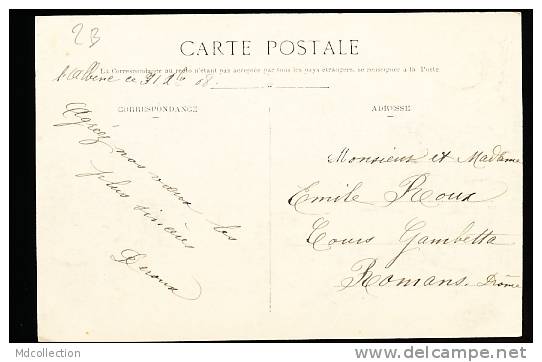 23
CARTE POSTALE
La Correspondance au recto n'étant pas acceptée par tous les pays étrangers, se renseigner à la Poste
ce 31 Xbre 08
CORRESPONDANCE
ADRESSE
Agréez nos vœux les
plus sincères
Deroux
Monsieur et Madame
Emile Roux
Cours Gambetta
Romans. Drôme
Mdcollection
www.delcampe.net